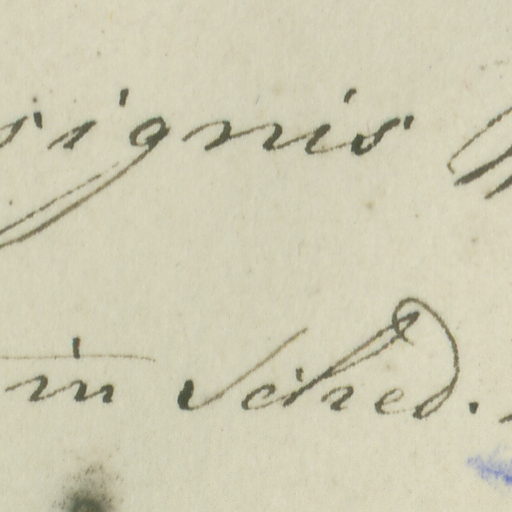 signis W
in Sched.